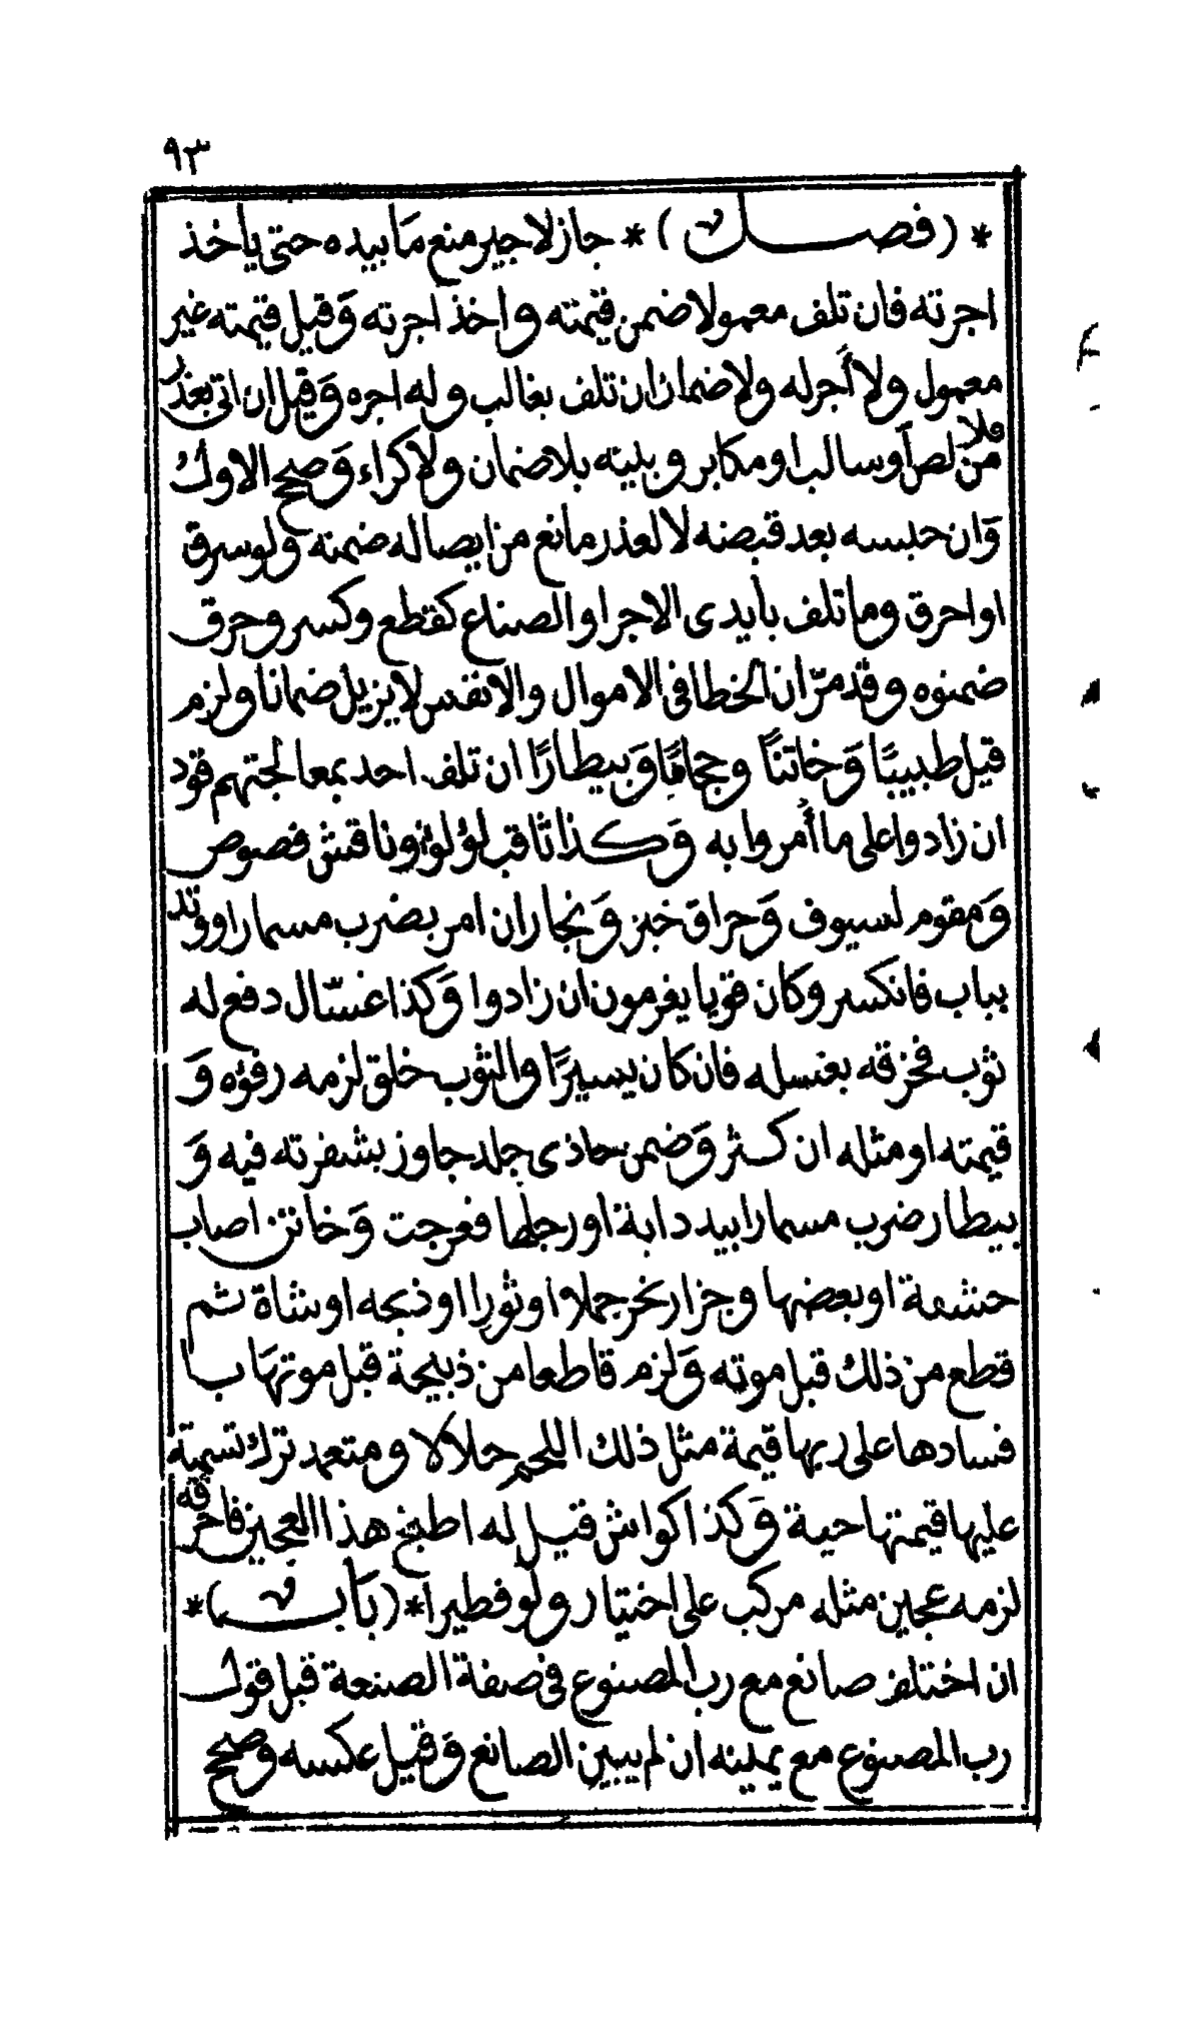 ٩٣
* (فصل) * جاز لاجير منع مَا بيده حتى ياخذ
اجرته فان تلف معمولا ضمن قيمته واخذ اجرته وَقيل قيمته غير
معمول ولا أجر له ولا ضمان ان تلف بغالب وله اجره وَقيل ان اتى بعذر
من لص أو سالب او مكابر وبينه بلا ضمان ولا كراء وَصحح الاول فلا
وَان حبسه بعد قبضه لا لعذر مانع من ايصاله ضمنه ولو سرق
او احرق وما تلف بأيدى الاجرا والصناع كقطع وكسر وحرق
ضمنوه وقد مرّ ان الخطا فى الاموال والانفس لا يزيل ضمانا ولزم
قيل طبيبًا وَخاتنًا وحجامًا وَبيطارًا ان تلف احد بمعالجتهم قود
ان زادوا على ما أُمروا به وَكذا ثاقب لؤلؤ وناقش فصوص
وَمقوم لسيوف وَحراق خبز وَنجار ان امر بضرب مسمار او وتد
بباب فانكسر وكان قويا يغرمون ان زادوا وَكذا غسّال دفع له
ثوب فخرقه بغسله فان كان يسيرًا والثوب خلق لزمه رفؤه وَ
قيمته او مثله ان كثر وَضمن حاذى جلد جاوز بشفرته فيه وَ
بيطار ضرب مسمارا بيد دابة او رجلها فعرجت وَخاتن اصاب
حشفة او بعضها وجزار نحر جملا او ثورا او ذبحه او شاة ثم
قطع من ذلك قبل موته وَلزم قاطعا من ذبيحة قبل موتهَا بـا
فسادها على ربها قيمة مثل ذلك اللحم حلالا ومتعمد ترك تسمية
عليها قيمتها حية وَكذا كواش قيل له اطبخ هذا العجين فاحرقه
لزمه عجين مثله مركب على اختيار ولو فطيرا * (بَاب) *
ان اختلف صانع مع رب المصنوع فى صفة الصنعة قبل قول
رب المصنوع مع يمينه ان لم يبين الصانع وَقيل عكسه وصحح